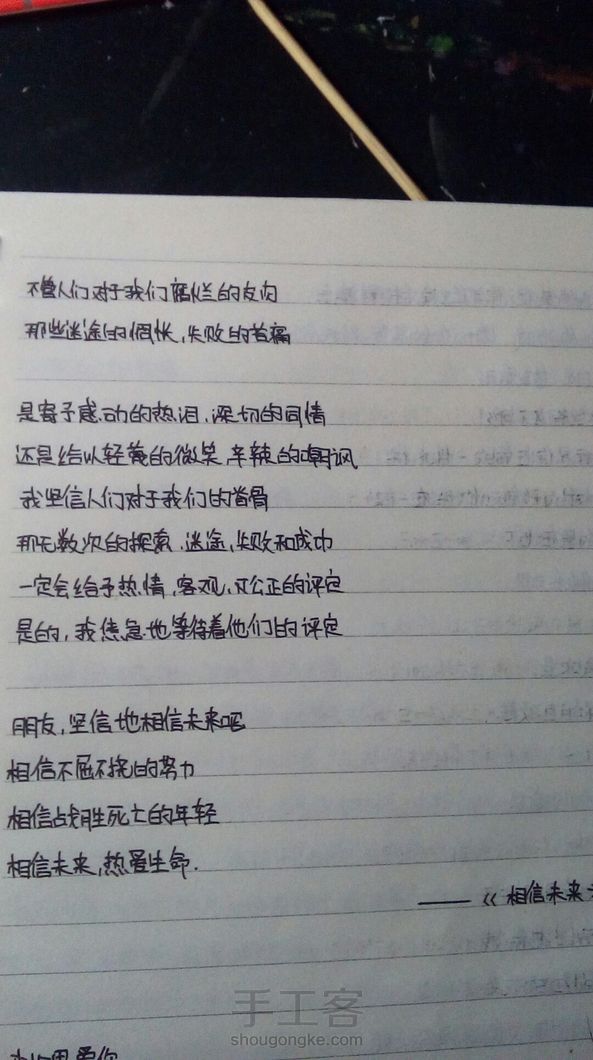 不管人们对于我们腐烂的皮肉
那些迷途的惆怅,失败的苦痛
是寄予感动的热泪,深切的同情
还是给以轻蔑的微笑,辛辣的嘲讽
我坚信人们对于我们的脊骨
那无数次的探索,迷途,失败和成功
一定会给予热情,客观,公正的评定
是的,我焦急地等待着他们的评定
朋友,坚信地相信未来吧
相信不屈不挠的努力
相信战胜死亡的年轻
相信未来,热爱生命.
——《相信未来
手工客
shougongke.com